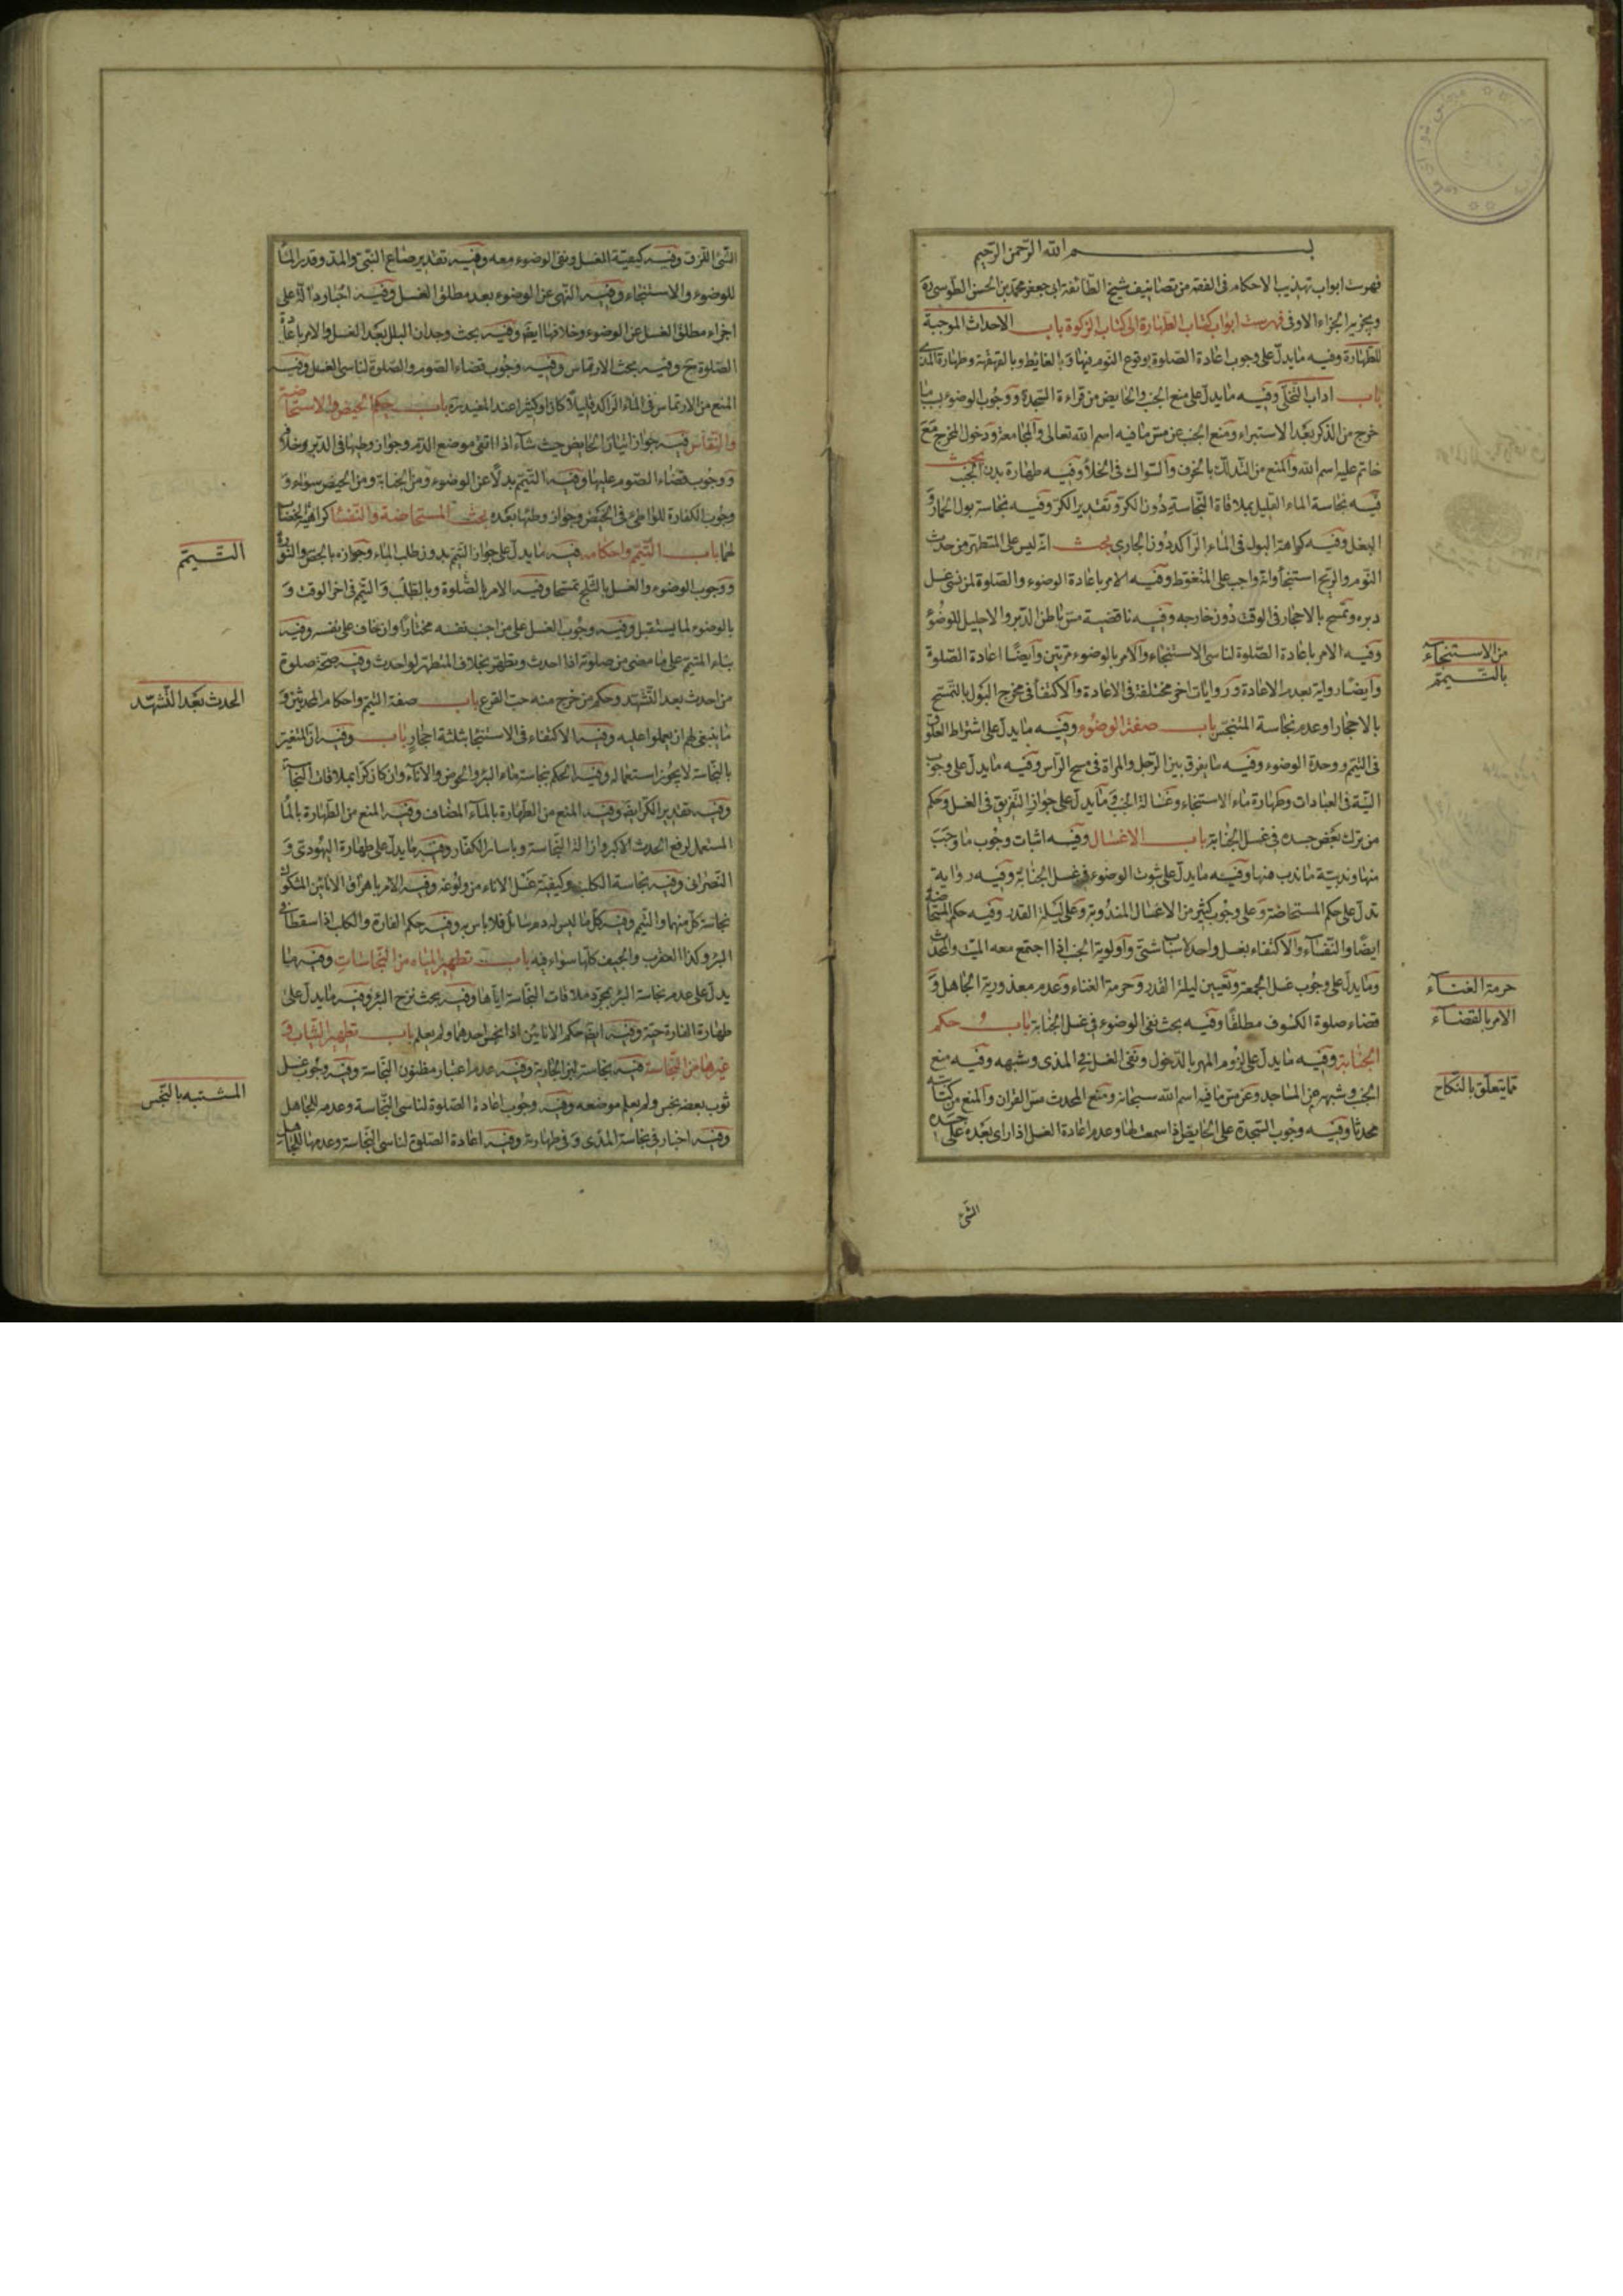 بسم الله الرحمن الرحيم
فهرست ابواب تهذيب الاحكام فى الفقه من تصانيف شيخ الطائفة ابى جعفر محمد بن الحسن الطوسى ره
الجزاء الاو فى فهرست ابواب كتاب الطهارة الى كتاب الزكوة باب الاحداث الموجبة
للطهارة وفيه ما يدل على وجوب اعادة الصلوة بوقوع النوم فيها و بالغايط وبالقهقهة وطهارة المذى
باب اداب التخلى وفيه ما يدل على منع الجنب والحايض من قراءة السجدة ووجوب الوضوء بسبب ما
خرج من الذكر بعد الاستبراء ومنع الجنب عن مس ما فيه اسم الله تعالى والمجامعة ودخول المخرج مع
خاتم عليه اسم الله والمنع من التدلك بالخزف والسواك فى الخلا وفيه طهارة بدن الجنب بحث
فيه نجاسة الماء القليل بملاقاة النجاسة دون الكر وتقدير الكر وفيه نجاسة بول الحمار و
البغل وفيه كراهة البول فى الماء الراكد دون الجارى بحث انه ليس على المتطهر من حدث
النوم والريح استنجا وانه واجب على المتغوط وفيه الامر باعادة الوضوء والصلوة لمن نسى غسل
دبره وتمسح بالاحجار فى الوقت دون خارجه وفيه ناقضية مس باطن الدبر والاحليل للوضوء
وفيه الامر باعادة الصلوة لناسى الاستنجاء والامر بالوضوء مرتين وايضا اعادة الصلوة
وايضا رواية بعدم الاعادة وروايات اخر مختلفة فى الاعادة والاكتفا فى مخرج البول بالتمسح
بالاحجار وعدم نجاسة المتنجس باب صفة الوضوء وفيه ما يدل على اشتراط العلوق
فى التيمم ووحدة الوضوء وفيه ما يفرق بين الرجل والمراة فى مسح الراس وفيه ما يدل على وجوب
النية فى العبادات وطهارة ماء الاستنجاء وغسالة الجنب وما يدل على جواز التفريق فى الغسل وحكم
من ترك بعض جسده فى غسل الجنابة باب الاغسال وفيه اثبات وجوب ما وجب
منها وندبية ما ندب منها وفيه ما يدل على ثبوت الوضوء فى غسل الجنابة وفيه رواية
تدل على حكم المستحاضة وعلى وجوب كثير من الاغسال المندوبة وعلى ليلة القدر وفيه حكم المستحاضة
ايضا والنفساء والاكتفاء بغسل واحد لاسباب شتى واولوية الجنب اذا اجتمع معه الميت والمحدث
وما يدل على وجوب غسل الجمعة وتعيين ليلة القدر وحرمة الغناء وعدم معذورية الجاهل و
قضاء صلوة الكسوف مطلقا وفيه بحث نفى الوضوء فى غسل الجنابة باب حكم
الجنابة وفيه ما يدل على لزوم المهر بالدخول ونفى الغسل فى المذى وشبهه وفيه منع
الجنب وشبهه عن المساجد وعن مس ما فيه اسم الله سبحانه ومنع المحدث مس القران والمنع من كتابته
محدثا وفيه وجوب السجدة على الحايض اذا سمعتها وعدم اعادة الغسل اذا راى بعده على جسده
الشئ
من الاستنجاء
بالتيمم
حرمة الغناء
الامر بالقضاء
مما يتعلق بالنكاح
الشئ اللزق وفيه كيفية الغسل ونفى الوضوء معه وفيه تقدير صاع النبى والمد وقدر الماء
للوضوء والاستنجاء وفيه النهى عن الوضوء بعد مطلق الغسل وفيه اخبار دالة على
اجزاء مطلق الغسل عن الوضوء وخلافها ايضا وفيه بحث وجدان البلل بعد الغسل والامر باعادة
الصلوة ح وفيه بحث الارتماس وفيه وجوب قضاء الصوم والصلوة لناسى الغسل وفيه
المنع من الارتماس فى الماء الراكد قليلا كان او كثيرا عند المفيد ره باب حكم الحيض والاستحاضة
والنفاس فيه جواز اتيان الحايض حيث شاء اذا اتقى موضع الدم وجواز وطيها فى الدبر وخلافه
ووجوب قضاء الصوم عليها وفيه التيمم بدلا عن الوضوء ومن الجنابة ومن الحيض سواء و
وجوب الكفارة للواطى فى الحيض وجواز وطئها بعده بحث المستحاضة والنفسا كراهية الخضاب
لهما باب التيمم واحكامه فيه ما يدل على جواز التيمم بدون طلب الماء وجوازه بالجص والنورة
ووجوب الوضوء والغسل بالثلج تمسحا وفيه الامر بالصلوة وبالطلب والتيمم فى اخر الوقت و
بالوضوء لما يستقبل وفيه وجوب الغسل على من اجنب نفسه مختارا وان خاف على نفسه وفيه
بناء المتيمم على ما مضى من صلوته اذا احدث ويتطهر بخلاف المتطهر لو احدث وفيه صحة صلوة
من احدث بعد التشهد وحكم من خرج منه حب القرع باب صفة التيمم واحكام المحدثين و
ما ينبغى لهم ان يعملوا عليه وفيه الاكتفاء فى الاستنجا بثلثة احجار باب وفيه ان المتغير
بالنجاسة لا يجوز استعماله وفيه الحكم بنجاسة ماء البئر والحوض والاناء وان كان كرا بملاقات النجاسة
وفيه تقدير الكر ايضا وفيه المنع من الطهارة بالماء المضاف وفيه المنع من الطهارة بالماء
المستعمل لرفع الحدث الاكبر وازالة النجاسة وباسار الكفار وفيه ما يدل على طهارة اليهودى و
النصرانى وفيه نجاسة الكلب وكيفية غسل الاناء من ولوغه وفيه الامر باهراق الانائين المشكوك
نجاسة كل منهما والتيمم وفيه كل ما ليس له دم سائل فلا باس به وفيه حكم الفارة والكلب اذا سقطا فى
البئر وكذا العقرب والجيف كلها سواء فيه باب تطهير المياه من النجاسات وفيه ما
يدل على عدم نجاسة البئر بمجرد ملاقات النجاسة اياها وفيه بحث نزح البئر وفيه ما يدل على
طهارة الفارة حية وفيه ايضا حكم الانائين اذا نجس احدهما ولم يعلم باب تطهير الثياب و
غيرها من النجاسة فيه نجاسة لبن الجارية وفيه عدم اعتبار مظنون النجاسة وفيه وجوب غسل
ثوب بعضه نجس ولم يعلم موضعه وفيه وجوب اعادة الصلوة لناسى النجاسة وعدمه للجاهل
وفيه اخبار فى نجاسة المذى و فى طهارته وفيه اعادة الصلوة لناسى النجاسة وعدمها للجاهل
التيمم
الحدث بعد التشهد
المشتبه بالنجس